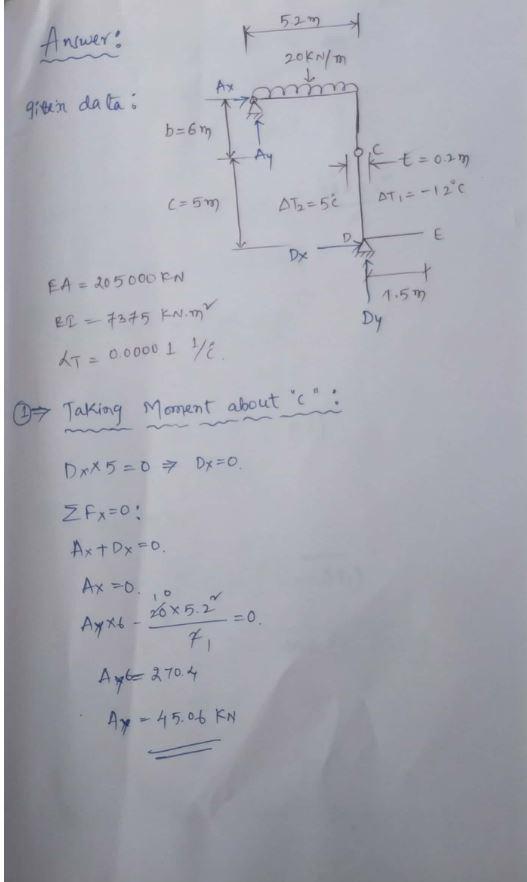 Answer:
given data:
5.2 m
20KN/m
Ax
b=6m
Ay
C
t = 0.2m
C=5m
ΔT₂=5°c
ΔT₁=-12°c
D
E
Dx
1.5m
Dy
EA = 205000 KN
EI = 7375 KN.m²
αT = 0.00001 1/°c.
① ⇒ Taking Moment about "C":
Dx×5=0 ⇒ Dx=0.
ΣFx=0:
Ax+Dx=0.
Ax=0.
Ay×6 - 20×5.2²/2 =0.
10
1
Ay6=270.4
Ay = 45.06 KN